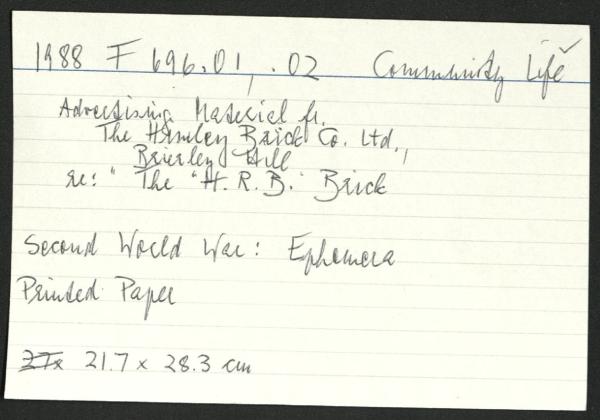 1988 F 696.01, .02 Community Life ✓
Advertising Material fr.
The Himley Brick Co. Ltd.,
Brierley Hill
re: " The "H. R. B." Brick
Second World War: Ephemera
Printed Paper
21.7 x 28.3 cm